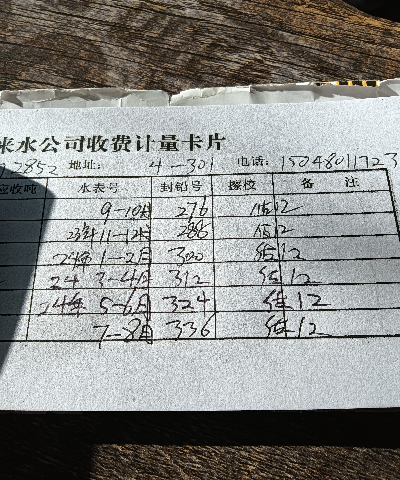 来水公司收费计量卡片
2852 地址: 4-301 电话: 15048011723
应收吨 水表号 封铅号 擦校 备 注
9-10月 276 估12
23年11-12月 288 估12
24年1-2月 300 估12
24 3-4月 312 估12
24年5-6月 324 估12
7-8月 336 估12